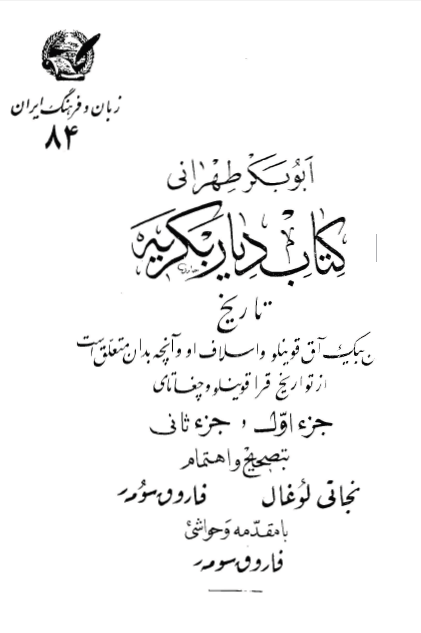 زبان و فرهنگ ایران
۸۴
ابوبکر طهرانی
کتاب دیاربکریه
تاریخ
بیک آق قوینلو و اسلاف او و آنچه بدان متعلق است
از تواریخ قرا قوینلو و چغاتای
جزء اول و جزء ثانی
بتصحیح و اهتمام
نجاتی لوغال فاروق سومر
با مقدمه و حواشی
فاروق سومر